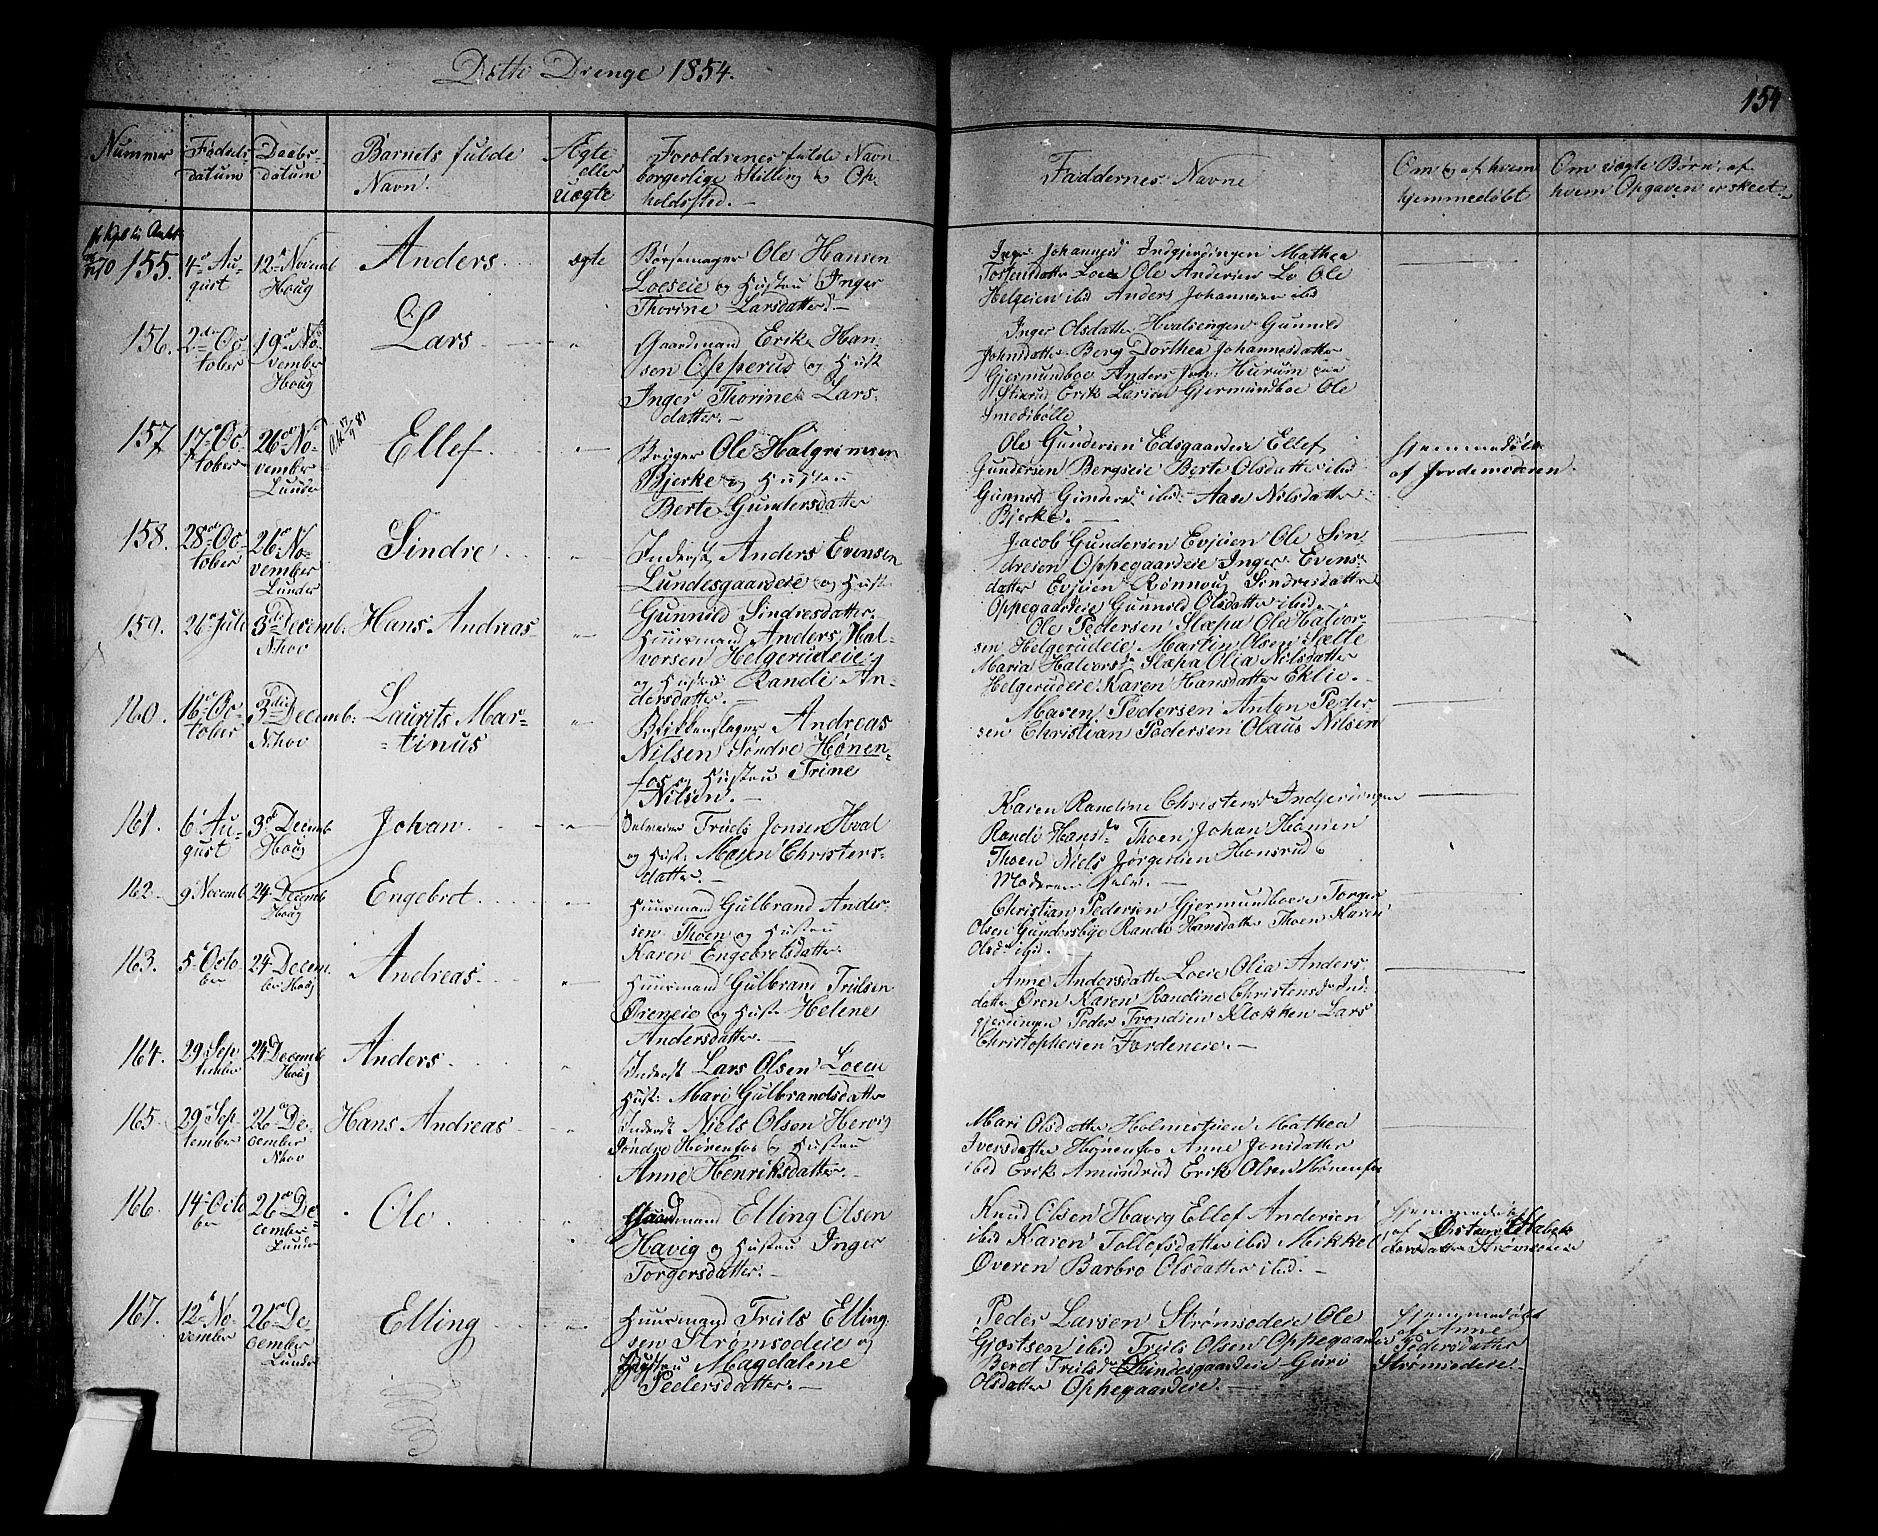 Ditto Drenge 1854.
154
Nummer
Fødsels-
datum
Daabs-
datum
Barnets fulde
Navn.
Ægte
eller
uægte
Forældrenes fulde Navn
borgerlige Stilling og Op-
holdssted.
Faddernes Navne
Om og af hvem
hjemmedøbt
Om uægte Børn, af
hvem Opgaven er skeet.
155.
4de Au-
gust
12te Novemb
Houg
Anders
ægte
Børsemager Ole Hansen
Loeseie og Hustru Inger
Thorine Larsdatter.
Inge Johannesd Indgjerdingen Mathea
Tostensdatter Loe Ole Andersen Lo Ole
Helgeien ibid Anders Johannesen ibid
156.
2den Oc-
tober
19de No-
vember
Houg
Lars
"
Gaardmand Erik Han-
sen Opperud og Hust
Inger Thorine Lars-
datter.
Inger Olsdatter Hvalsengen Gunnild
Johnsdatter Berg Dorthea Johannesdatter
Gjermundboe Anders Jon: Hurum paa
Stixrud Erik Larsen Gjermundboe Ole
Smedsbølle
157
17de Oc-
tober
26de No-
vember
Lunder
Ellef
"
Bruger Ole Halgrimsen
Bjerke og Hustru
Berte Gundersdatter
Ole Gundersen Edsgaardeie Ellef
Gundersen Bergseie Berte Olsdatter ibid
Gunnild Gundersd ibid Aase Nilsdatter
Bjerke.
Hjemmedøbt
af Jordemoderen.
158.
28de Oc-
tober
26de No-
vember
Lunder
Sindre
"
Inderst Anders Evensen
Lundesgaardeie og Hust
Gunnild Sindresdatter.
Jacob Gundersen Evjuen Ole Sin-
dresen Oppegaardeie Inger Evens-
datter Evjuen Rønnoug Sindresdatter
Oppegaardeie Gunnild Olsdatter ibid.
159.
26de Juli
3die Decemb.
N.hov
Hans Andreas
"
Huusmand Anders Hal-
vorsen Helgerudeie
og Hustru Randi An-
dersdatter.
Ole Pedersen Slæpa Ole Halvor-
sen Helgerudeie Martin Olsen Sætte
Maria Halvorsd Slæpa Olia Nilsdatter
Helgerudeie Karen Hansdatter Eklie.
160.
16de Oc-
tober
3die Decemb:
N.hov
Laurits Mar-
tinus
"
Blikkenslager Andreas
Nilsen Søndre Hønen-
fos og Hustru Trine
Nilsen.
Maren Pedersen Anton Peder-
sen Christian Pedersen Olaus Nilsen
161.
6te Au-
gust
3die Decemb
Houg
Johan
"
Truls Jonsen Hval
og Hust: Maren Christens-
datter.
Karen Randine Christensd Indgjerdingen
Randi Hansd: Thoen Johan Hansen
Thoen Niels Jørgensen Hønsrud
Moderen selv.
162.
9de Novemb
24de Decemb
Houg
Engebret
"
Huusmand Gulbrand Ander-
sen Thoen og Hustru
Karen Engebretsdatter
Christian Pedersen Gjermundboeie Torger
Olsen Gundersbye Randi Hansdatter Thoen Karen
Olsd ibid.
163.
5te Octo
ber
24de Decem-
ber Houg
Andreas
"
Huusmand Gulbrand Trulsen
Øreneie og Hust: Helene
Andersdatter.
Anne Andersdatter Loeie Olia Anders-
datter Øren Karen Randine Christensd Ind-
gjerdingen Peder Trondsen Klokken Lars
Christophersen Fordeneie.
164.
29de Sep
tember
24de Decemb
Houg
Anders
"
Inderst Lars Olsen Loeen
Hust: Mari Gulbrandsdatter
165.
29de Sep
tember
26de De-
cember
N.hov
Hans Andreas
"
Inderst Niels Olsen Hervig
Søndre Hønenfos og Hustru
Anne Henriksdatter.
Mari Olsdatter Holmesteien Mathea
Iversdatter Hønenfos Anne Jonsdatter
ibid Erik Amundrud Erik Olsen Hønenfos
166.
14de Octo
ber
26de De-
cember
Lunder
Ole
"
Gaardmand Elling Olsen
Havig og Hustru Inger
Torgersdatter.
Knud Olsen Havig Ellef Andersen
ibid Karen Tollefsdatter ibid Mikkel
Øveren Barbro Olsdatter ibid.
Hjemmedøbt
af
Larsdatter Strømsoeie
167.
12te No-
vember
26de De
cember
Lunder
Elling
"
Huusmand Truls Elling-
sen Strømsodeie og
Hustru Magdalene
Pedersdatter.
Peder Larsen Strømsodeie Ole
Gjostsen ibid Truls Olsen Oppegaardeie
Beret Trulsd Lundesgaardeie Guri
Olsdatter Oppegaardeie.
Hjemmedøbt
af Anne
Pedersdatter
Strømsodeie.